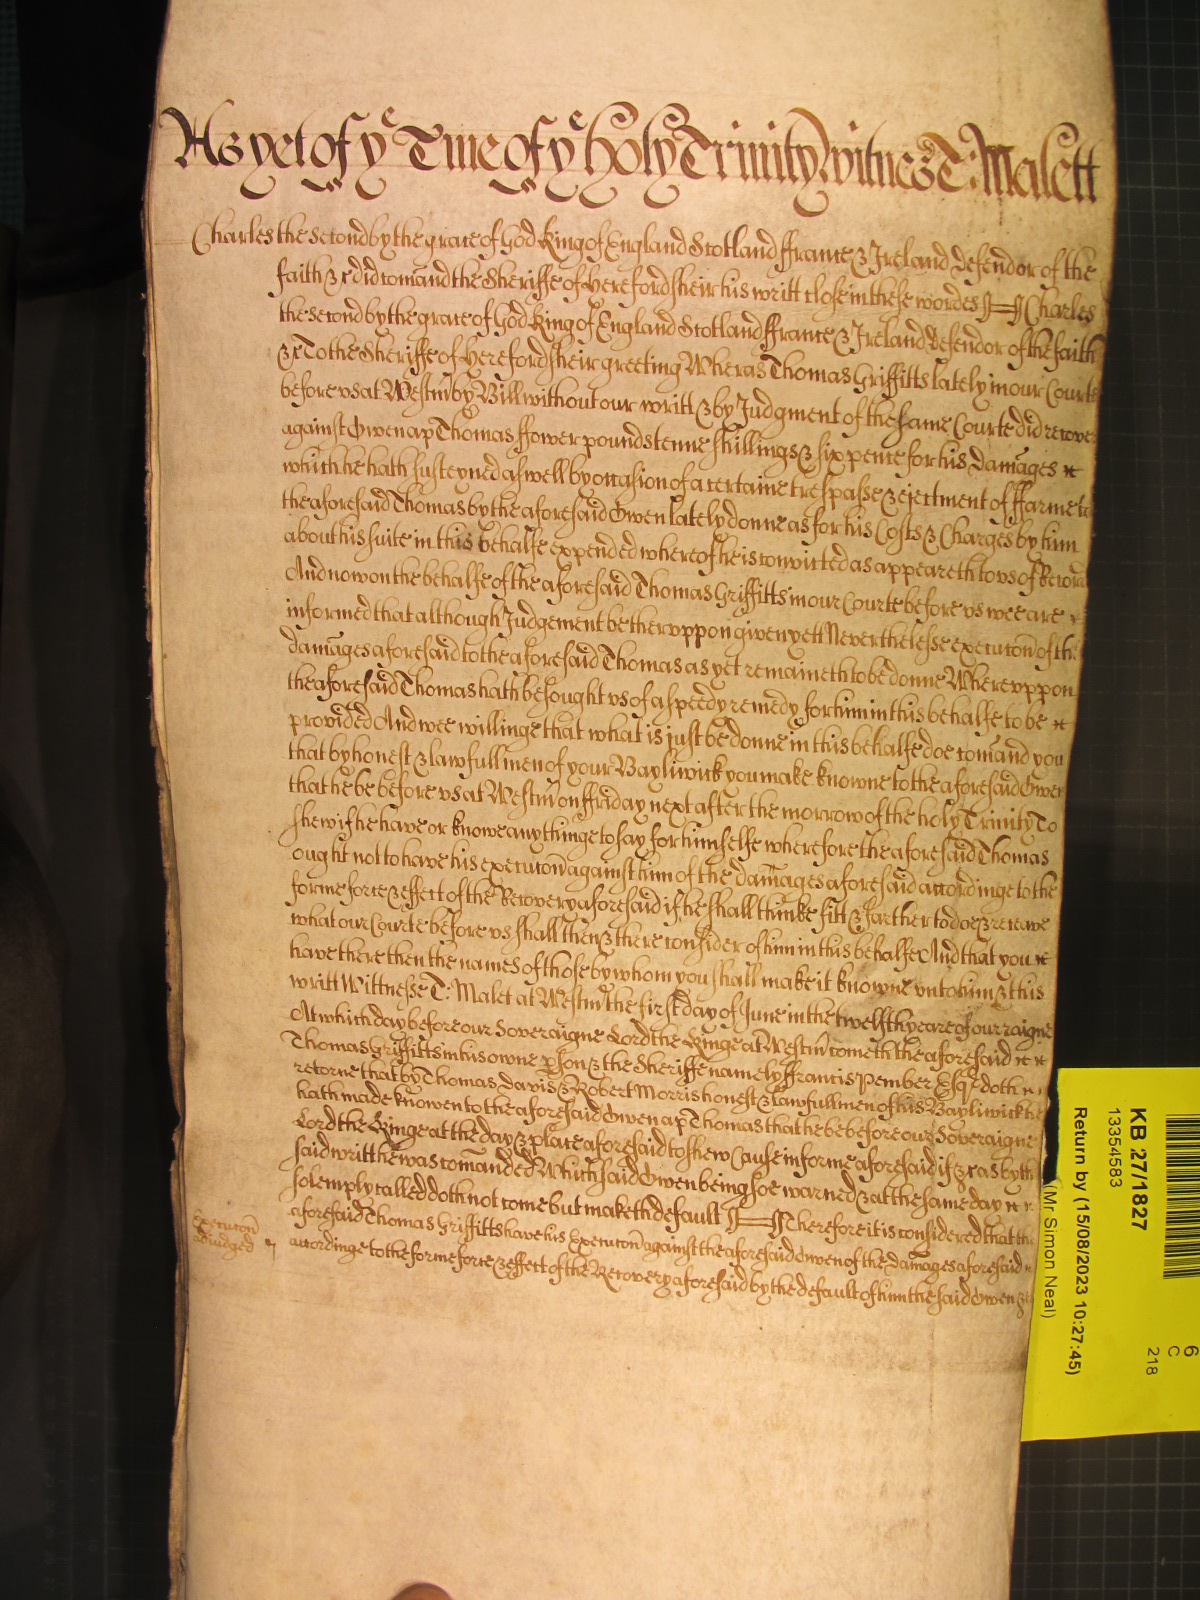 As yet of ye Tme of ye holy Trinity witnes T: Malett
Charles the second by the grace of God King of England Scotland ffrance & Ireland defendor of the
faith &c did comand the Sheriffe of Herefordsheir his writt close in these wordes Charles
the second by the grace of God King of England Scotland ffrance & Ireland defendor of the faith
&c To the Sheriffe of Herefordsheir greeting Wheras Thomas Griffitts lately in our Courte
before us at Westm by Bill without our writt & by Judgment of the same Courte did recover
against Owen ap Thomas ffower pounds tenne shillings & six pence for his damages
which he hath susteyned aswell by occasion of a certaine trespasse & ejectment of ffarme to
the aforesaid Thomas by the aforesaid Owen lately donne as for his Costs & Charges by him
about his suite in this behalfe expended whereof he is convicted as appeareth to us of Record
And now on the behalfe of the aforesaid Thomas Griffitts in our Courte before us wee are
informed that although Judgement be theruppon given yett Neverthelesse execucon of the
damages aforesaid to the aforesaid Thomas as yet remaineth to be donne Whereuppon
the aforesaid Thomas hath besought us of a speedy remedy for him in this behalfe to be
provided And wee willinge that what is just be donne in this behalfe doe comand you
that by honest & lawfull men of your Bayliwick you make knowne to the aforesaid Owen
that he be before us at Westm on ffriday next after the morrow of the holy Trinity To
shew if he have or knowe any thinge to say for himselfe wherefore the aforesaid Thomas
ought not to have his execucon against him of the damages aforesaid accordinge to the
forme force & effect of the Recovery aforesaid if he shall thinke fitt & farther to doe & receave
what our Courte before us shall then & there consider of him in this behalfe And that you
have there then the names of those by whom you shall make it knowne unto him & this
writt Wittnesse T: Malet at Westm the first day of June in the twelfth yeare of our raigne
At which day before our Soveraigne Lord the Kinge at Westm cometh the aforesaid
Thomas Griffitts in his owne pson & the Sheriffe namely ffrancis Pember Esqr doth
retorne that by Thomas Davis & Robert Morris honest & lawfull men of his Bayliwick he
hath made knowen to the aforesaid Owen ap Thomas that he be before our Soveraigne
Lord the Kinge at the day & place aforesaid to shew Cause in forme aforesaid if &c as by the
said writt he was comanded Which said Owen being soe warned & at the same day
solemply called doth not come but maketh default Therefore it is considered that the
aforesaid Thomas Griffitts have his Execucon against the aforesaid Owen of the damages aforesaid
accordinge to the forme force & effect of the Recovery aforesaid by the default of him the said Owen &c
Execucon
adiudged
KB 27/1827
13354583
Return by (15/08/2023 10:27:45)
(Mr Simon Neal)
6
C
218